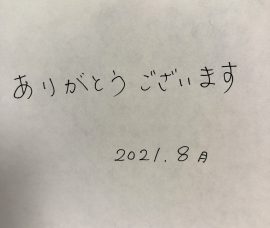 ありがとうございます
2021.8月